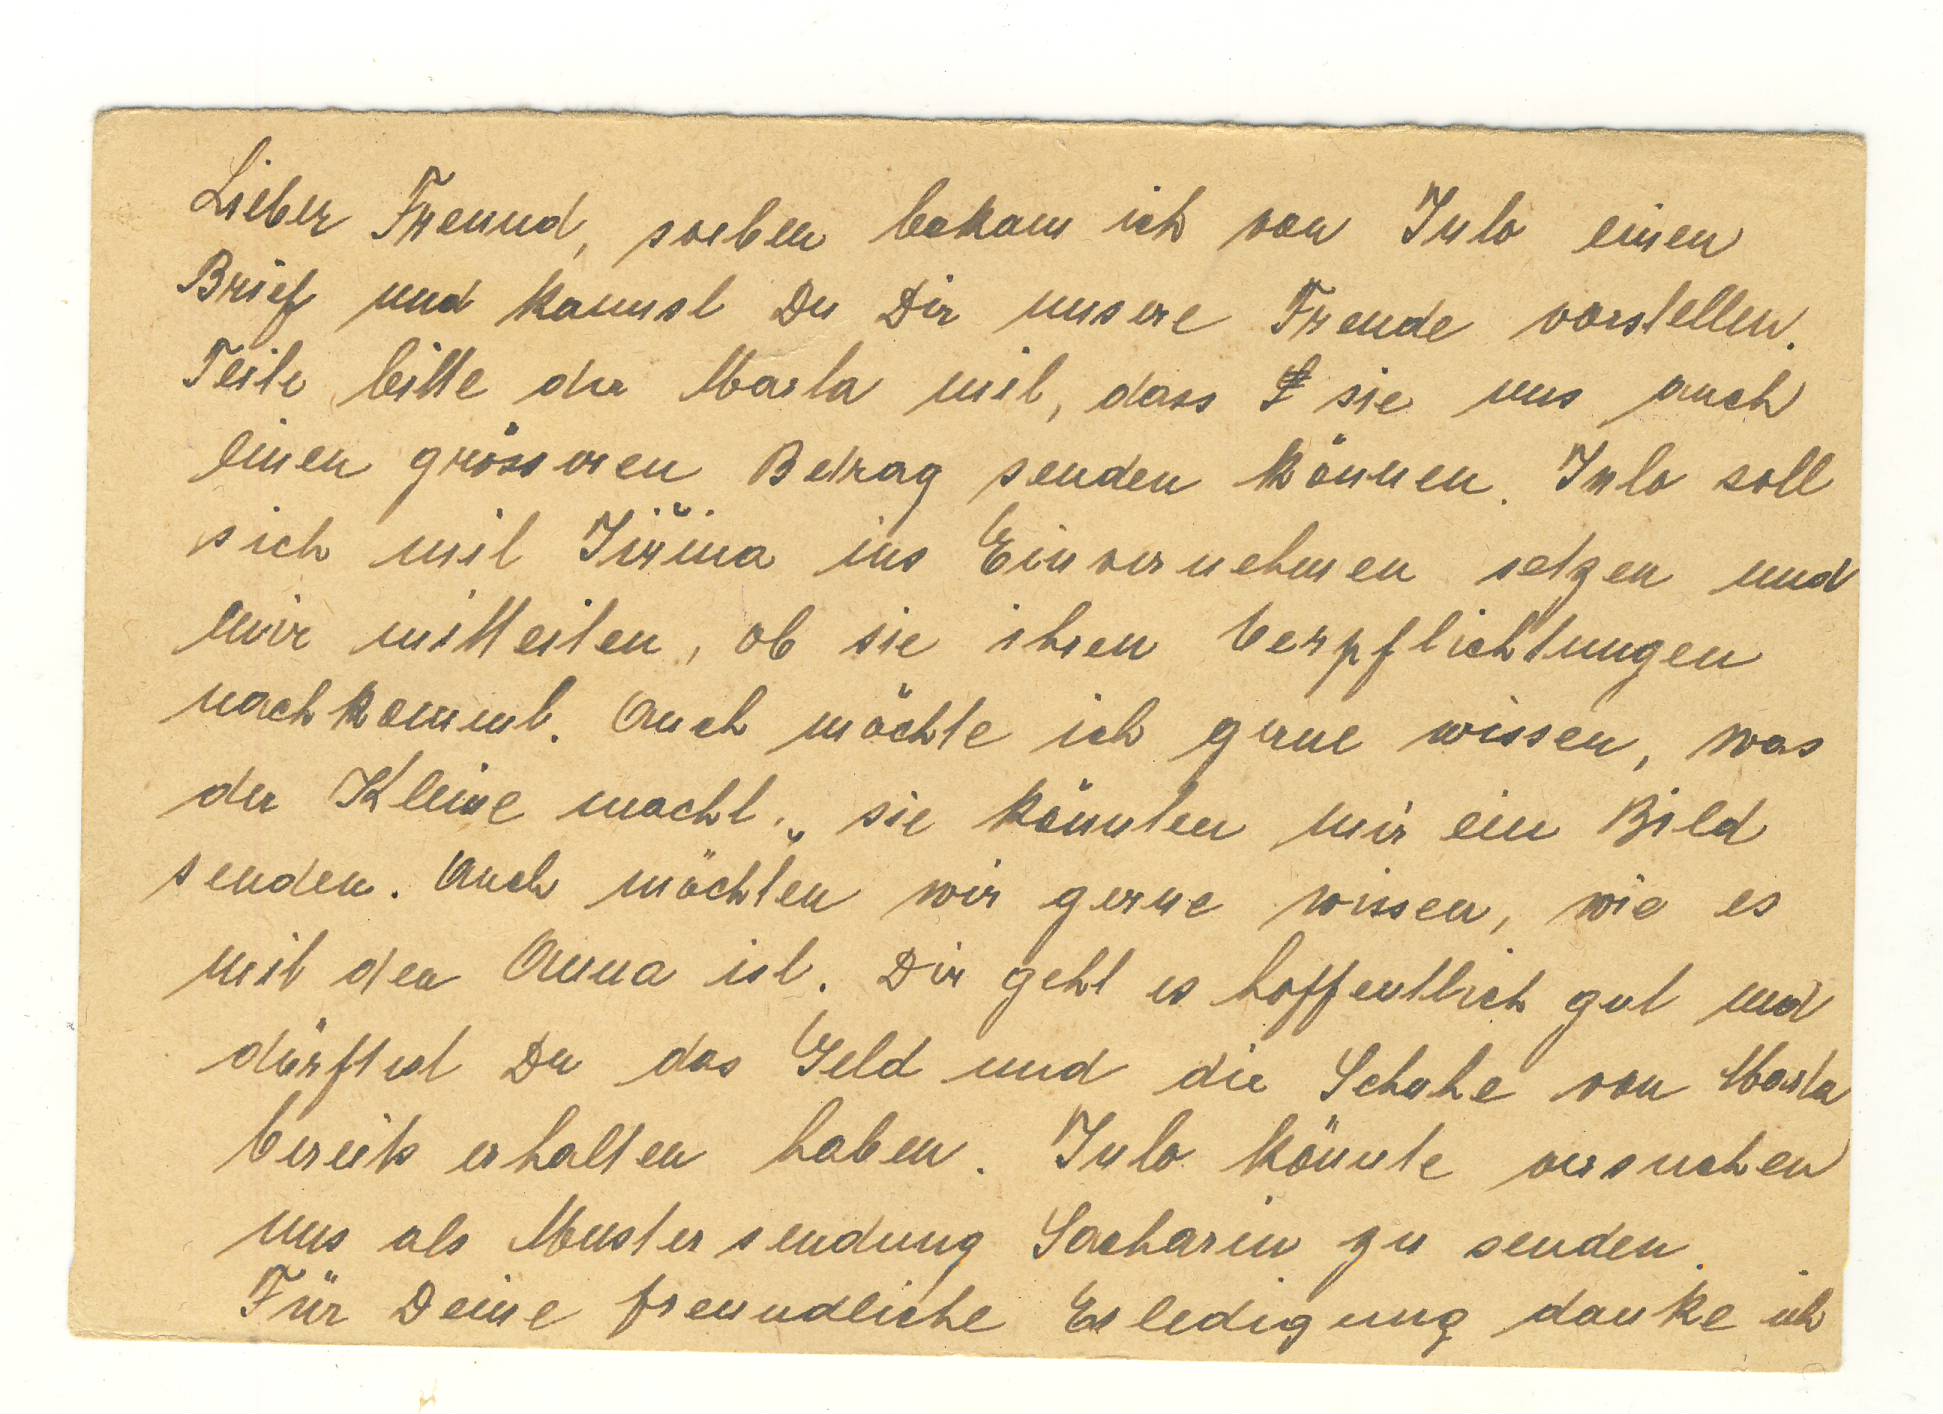 Lieber Freund, soeben bekam ich von Julo einen
Brief und kannst Du Dir unsere Freude vorstellen.
Teile bitte der Marta mit, dass sie uns auch
einen grösseren Betrag senden können. Julo soll
sich mit Jiřina ins Einvernehmen setzen und
mir mitteilen, ob sie ihren Verpflichtungen
nachkommt. Auch möchte ich gerne wissen, was
der Kleine macht, sie könnten mir ein Bild
senden. Auch möchten wir gerne wissen, wie es
mit der Anna ist. Dir geht es hoffentlich gut und
dürftest Du das Geld und die Schuhe von Marta
bereits erhalten haben. Julo könnte versuchen
uns als Mustersendung Sacharin zu senden.
Für Deine freundliche Erledigung danke ich